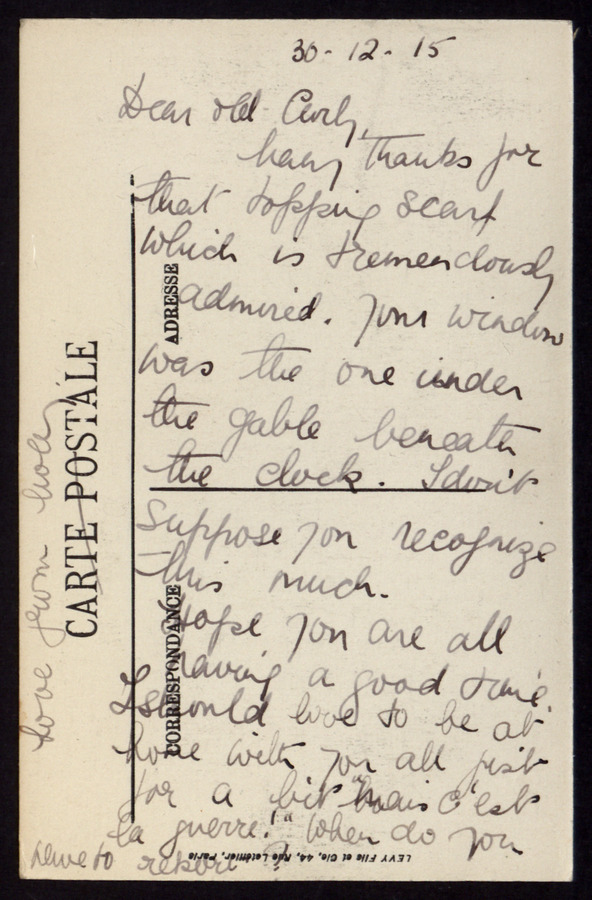 30-12-15
Dear old Curly,
Many thanks for
that topping scarf
which is tremendously
admired. Your window
was the one under
the gable beneath
the clock. I don't
suppose you recognize
this much.
Hope you are all
having a good time.
I should love to be at
home with you all just
for a bit "mais c'est
la guerre!" When do you
have to report
Love from
CARTE POSTALE
ADRESSE
CORRESPONDANCE
LEVY Fils et Cie, 44, Rue Letellier, Paris